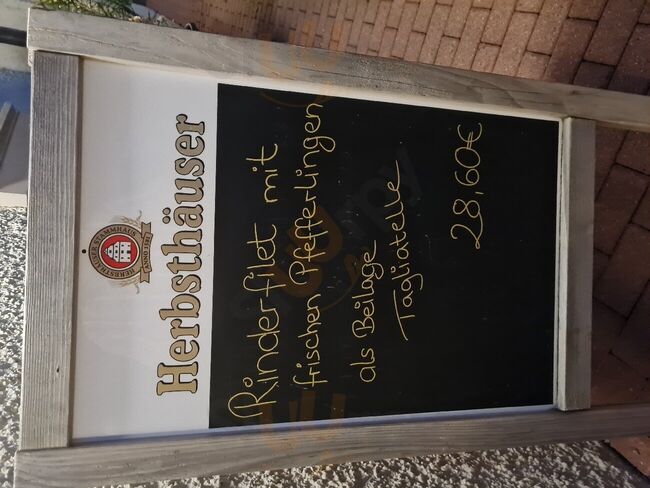 HERBSTHÄUSER STAMMHAUS
Herbsthäuser
Rinderfilet mit
frischen Pfefferlingen
als Beilage
Tagliatelle
28,60€